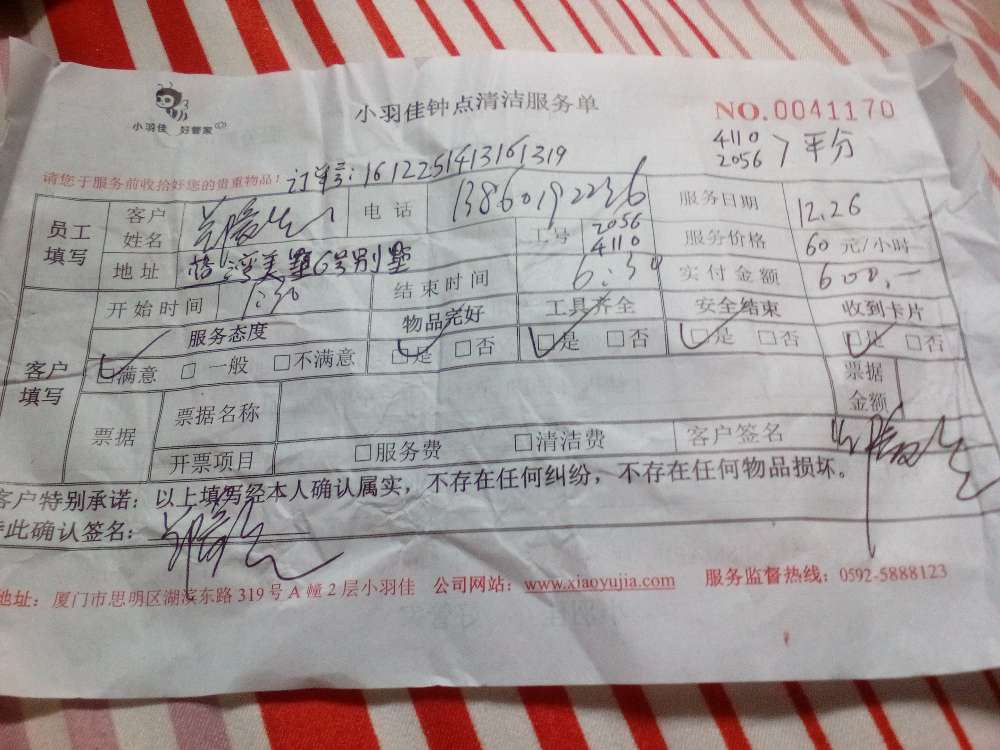 小羽佳 好管家
小羽佳钟点清洁服务单
NO.0041170
4110
2056 > 平分
请您于服务前收拾好您的贵重物品! 订单号:161225141316 1319
员工填写 客户姓名 电话 13860192236 工号 2056 4110 服务日期 12.26
地址 湾美墅6号别墅 服务价格 60 元/小时
开始时间 1:30 结束时间 6:30 实付金额 600.-
客户填写 服务态度 物品完好 工具齐全 安全结束 收到卡片
☑满意 □一般 □不满意 ☑是 □否 ☑是 □否 ☑是 □否 ☑是 □否
票据 票据名称 票据金额
开票项目 □服务费 □清洁费 客户签名
客户特别承诺:以上填写经本人确认属实,不存在任何纠纷,不存在任何物品损坏。
此确认签名:
地址:厦门市思明区湖滨东路319号A幢2层小羽佳 公司网站:www.xiaoyujia.com 服务监督热线:0592-5888123